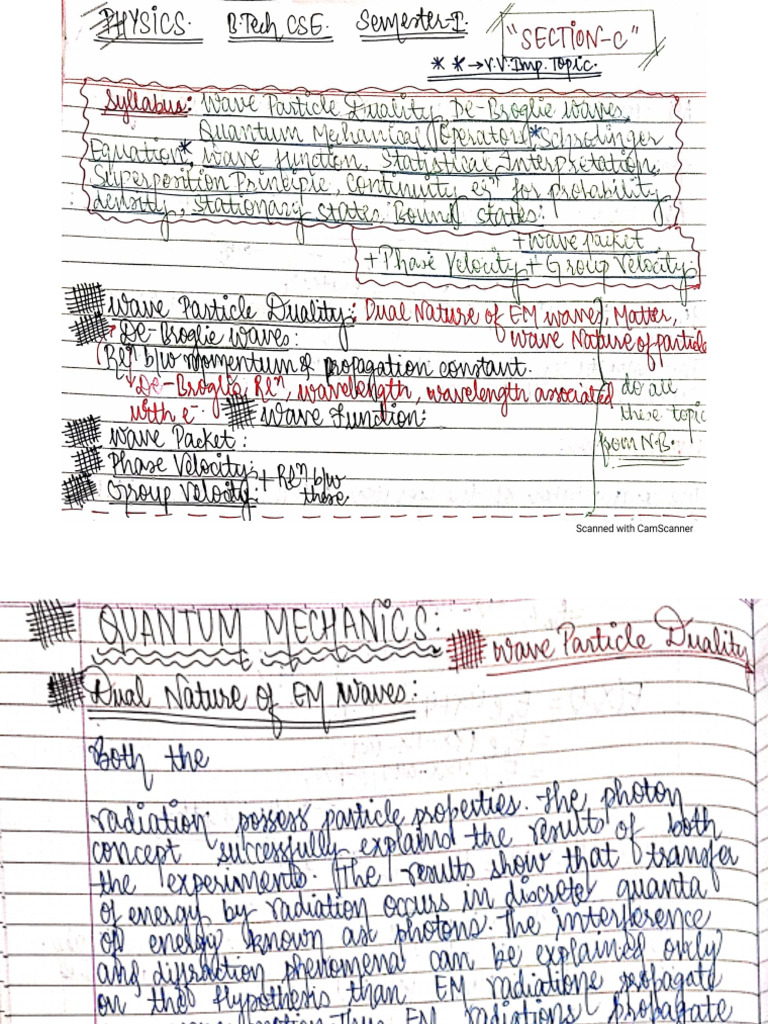 PHYSICS. B.Tech CSE. Semester-I.
"SECTION-C"
* * → V.V. Imp. Topic.
Syllabus: Wave Particle Duality, De-Broglie waves,
Quantum Mechanical Operators, *Schrodinger
Equation*, wave function, Statistical Interpretation,
Superposition Principle, continuity eqⁿ for probability
density, Stationary states, Bound states.
+ wave packet
+ Phase Velocity + Group Velocity.
Wave Particle Duality: Dual Nature of EM waves, Matter,
wave Nature of particle
De-Broglie waves:
Relⁿ b/w momentum & propagation constant.
↳ De-Broglie Relⁿ, wavelength, wavelength associated
with e⁻. Wave Function:
do all
these topic
from N.B.
Wave Packet:
Phase Velocity: + Relⁿ b/w
Group Velocity: these
Scanned with CamScanner
QUANTUM MECHANICS:
Wave Particle Duality
Dual Nature of EM Waves:
Both the
radiation possess particle properties. The photon
concept successfully explains the results of both
the experiments. The results show that transfer
of energy by radiation occurs in discrete quanta
of energy known as photons. The interference
and diffraction phenomena can be explained only
on the Hypothesis than EM radiations propagate
Thus EM radiations propagate